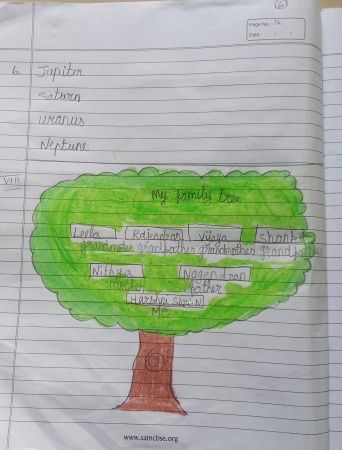 6
Page No. 12
Date: / /
6. Jupiter
Saturn
Uranus
Neptune
VIII
My family tree
Leela Rajendran Vijaya
grandmother grandfather grandmother grandfather
Nithya Nagendran
mother father
Me
www.samcbse.org